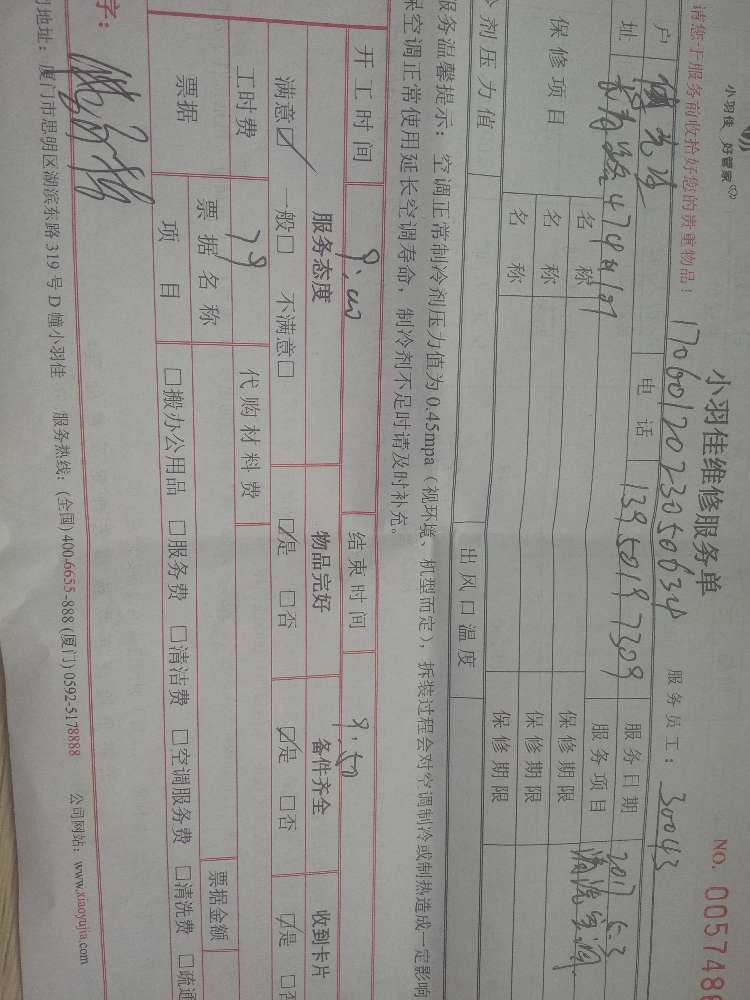 小羽佳 好管家
小羽佳维修服务单
NO. 0057488
请您于服务前收拾好您的贵重物品!
1706012023050634
服务员工: 30043
户
电话
13950197309
服务日期
2017
址
服务项目
清洗空调
保修项目
名称
保修期限
名称
保修期限
名称
保修期限
冷剂压力值
出风口温度
服务温馨提示: 空调正常制冷剂压力值为 0.45mpa (视环境、机型而定), 拆装过程会对空调制冷或制热造成一定影响
保空调正常使用延长空调寿命, 制冷剂不足时请及时补充。
开工时间
9:00
结束时间
9:50
服务态度
物品完好
备件齐全
收到卡片
满意☑ 一般□ 不满意□
☑是 □否
☑是 □否
☑是 □否
工时费
79
代购材料费
票据
票据名称
票据金额
项目
□搬办公用品 □服务费 □清洁费 □空调服务费 □清洗费 □疏通
字:
地址: 厦门市思明区湖滨东路 319 号 D 幢小羽佳 服务热线: (全国) 400-6655-888 (厦门) 0592-5178888 公司网站: www.xiaoyujia.com